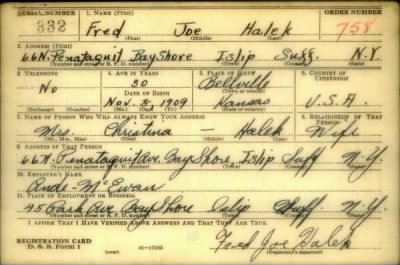 SERIAL NUMBER 1. NAME (Print) ORDER NUMBER
332 Fred Joe Halek 758
(First) (Middle) (Last)
2. ADDRESS (Print)
66 N. Penataquit BayShore Islip Suff. N.Y.
(Number and street or R. F. D. number) (Town) (County) (State)
3. TELEPHONE 4. AGE IN YEARS 5. PLACE OF BIRTH 6. COUNTRY OF CITIZENSHIP
No 30 Bellville
DATE OF BIRTH (Town or county)
Nov. 8, 1909 Kansas U.S.A.
(Exchange) (Number) (Mo.) (Day) (Yr.) (State or country)
7. NAME OF PERSON WHO WILL ALWAYS KNOW YOUR ADDRESS 8. RELATIONSHIP OF THAT PERSON
Mrs. Christina — Halek Wife
(Mr., Mrs., Miss) (First) (Middle) (Last)
9. ADDRESS OF THAT PERSON
66 N. Penataquit Ave. Bay Shore, Islip Suff N.Y.
(Number and street or R. F. D. number) (Town) (County) (State)
10. EMPLOYER'S NAME
McEwan
11. PLACE OF EMPLOYMENT OR BUSINESS
45 Park Ave Bay Shore Islip Suff N.Y.
(Number and street or R. F. D. number) (Town) (County) (State)
I AFFIRM THAT I HAVE VERIFIED ABOVE ANSWERS AND THAT THEY ARE TRUE.
REGISTRATION CARD
D. S. S. Form 1 (over) 16—17105 Fred Joe Halek
(Registrant's signature)